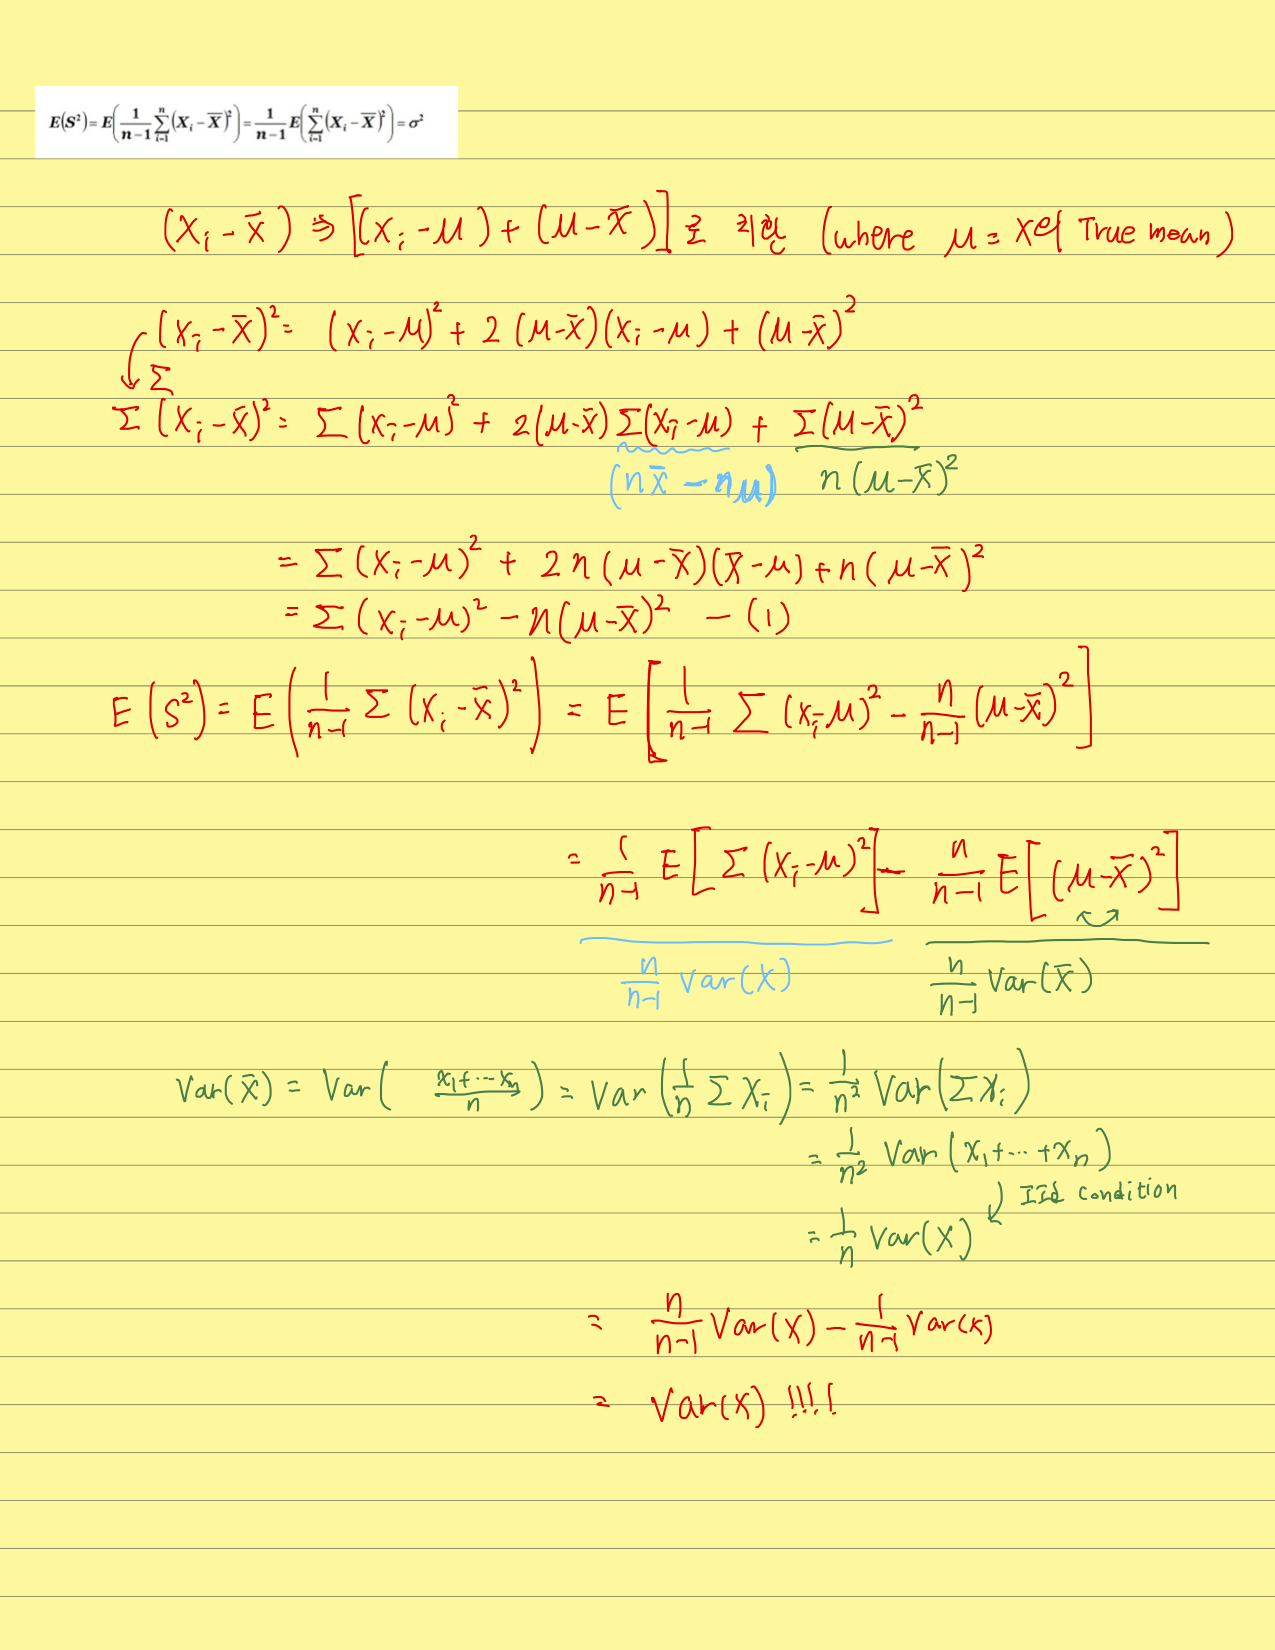 E(S²) = E(1/(n-1) Σ_{i=1}^{n} (X_i - X̄)²) = 1/(n-1) E(Σ_{i=1}^{n} (X_i - X̄)²) = σ²
(X_i - X̄) ⇒ [(X_i - μ) + (μ - X̄)]로 치환 (where μ = X의 True mean)
(X_i - X̄)² = (X_i - μ)² + 2(μ - X̄)(X_i - μ) + (μ - X̄)²
Σ
Σ(X_i - X̄)² = Σ(X_i - μ)² + 2(μ - X̄) Σ(X_i - μ) + Σ(μ - X̄)²
(nX̄ - nμ) n(μ - X̄)²
= Σ(X_i - μ)² + 2n(μ - X̄)(X̄ - μ) + n(μ - X̄)²
= Σ(X_i - μ)² - n(μ - X̄)² - (1)
E(S²) = E(1/(n-1) Σ(X_i - X̄)²) = E[1/(n-1) Σ(X_i - μ)² - n/(n-1) (μ - X̄)²]
= 1/(n-1) E[Σ(X_i - μ)²] - n/(n-1) E[(μ - X̄)²]
n/(n-1) Var(X) n/(n-1) Var(X̄)
Var(X̄) = Var( (x₁+⋯x_n)/n ) = Var(1/n ΣX_i) = 1/n² Var(ΣX_i)
= 1/n² Var(x₁+⋯+x_n)
IId condition
= 1/n Var(X)
= n/(n-1) Var(X) - 1/(n-1) Var(x)
= Var(X) !!!!